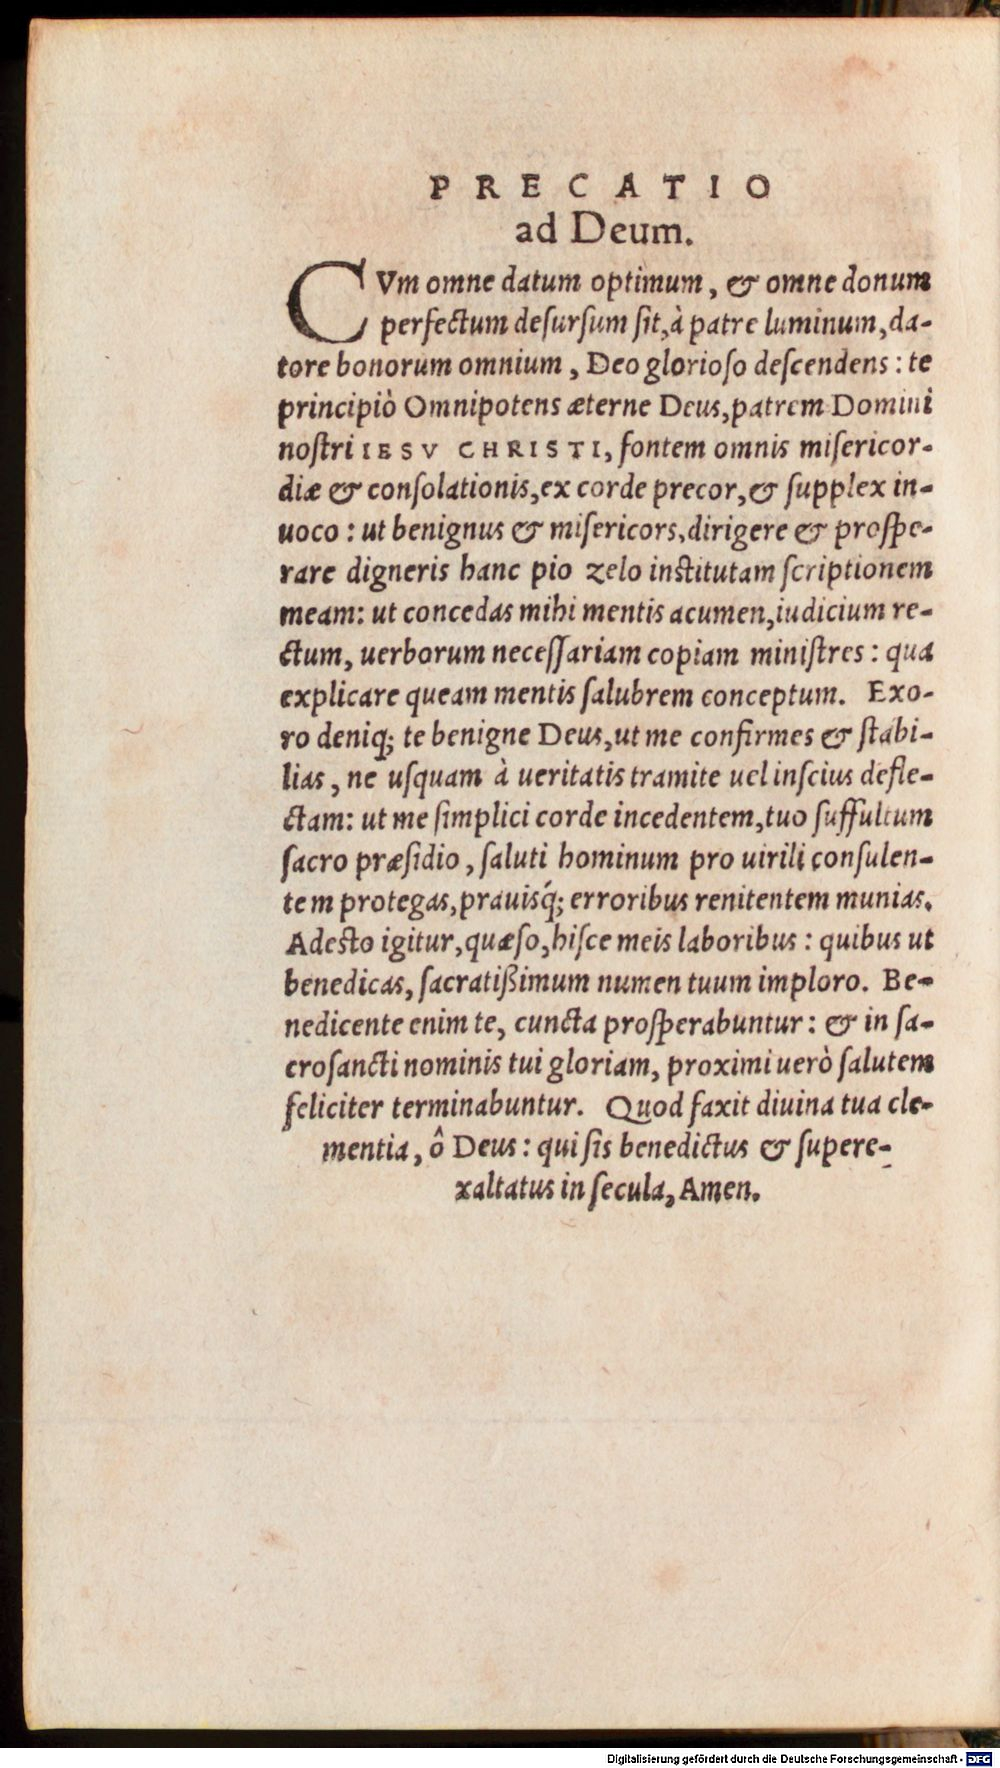 PRECATIO
ad Deum.
CVm omne datum optimum, & omne donum
perfectum desursum sit, à patre luminum, da-
tore bonorum omnium, Deo glorioso descendens: te
principiò Omnipotens æterne Deus, patrem Domini
nostri IESV CHRISTI, fontem omnis misericor-
diæ & consolationis, ex corde precor, & supplex in-
uoco: ut benignus & misericors, dirigere & prospe-
rare digneris hanc pio zelo institutam scriptionem
meam: ut concedas mihi mentis acumen, iudicium re-
ctum, uerborum necessariam copiam ministres: qua
explicare queam mentis salubrem conceptum. Exo-
ro deniq; te benigne Deus, ut me confirmes & stabi-
lias, ne usquam à ueritatis tramite uel inscius defle-
ctam: ut me simplici corde incedentem, tuo suffultum
sacro præsidio, saluti hominum pro uirili consulen-
tem protegas, prauisq́; erroribus renitentem munias.
Adesto igitur, quæso, hisce meis laboribus: quibus ut
benedicas, sacratißimum numen tuum imploro. Be-
nedicente enim te, cuncta prosperabuntur: & in sa-
crosancti nominis tui gloriam, proximi uerò salutem
feliciter terminabuntur. Quod faxit diuina tua cle-
mentia, ô Deus: qui sis benedictus & supere-
xaltatus in secula, Amen.
Digitalisierung gefördert durch die Deutsche Forschungsgemeinschaft - DFG